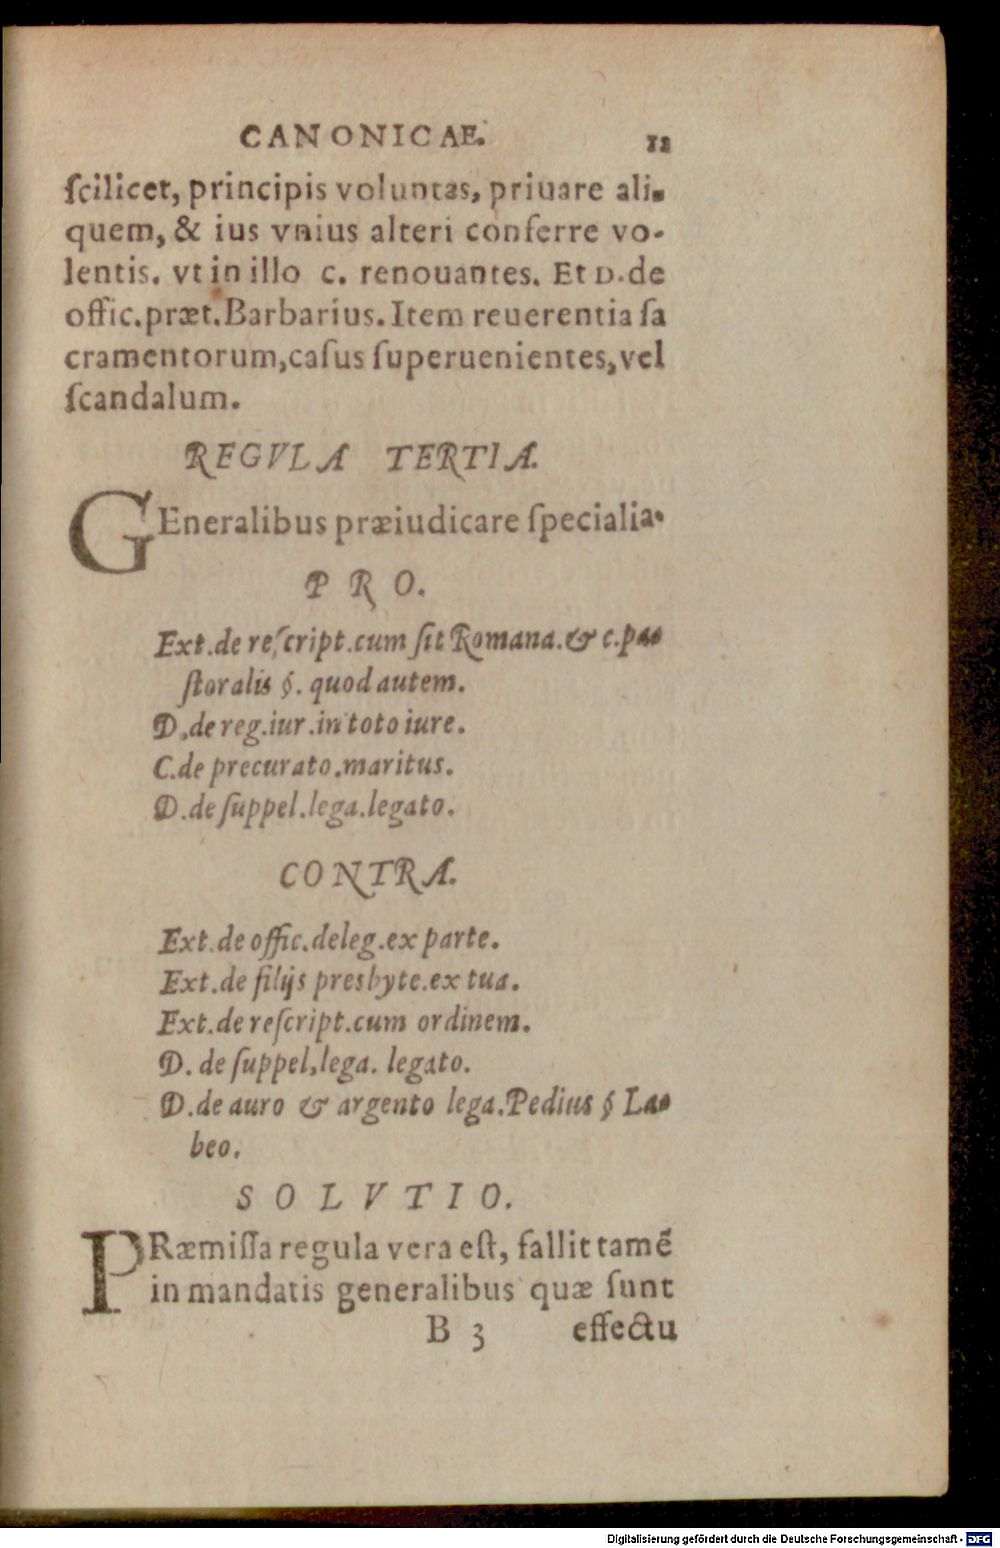 CANONICAE. 12
ſcilicet, principis voluntas, priuare ali-
quem, & ius vnius alteri conferre vo-
lentis. vt in illo c. renouantes. Et D. de
offic. præt. Barbarius. Item reuerentia ſa
cramentorum, caſus ſuperuenientes, vel
ſcandalum.
REGVLA TERTIA.
GEneralibus præiudicare ſpecialia.
PRO.
Ext. de reſcript. cum ſit Romana. & c. pa-
ſtoralis §. quod autem.
D. de reg. iur. in toto iure.
C. de precurato. maritus.
D. de ſuppel. lega. legato.
CONTRA.
Ext. de offic. deleg. ex parte.
Ext. de filijs presbyte. ex tua.
Ext. de reſcript. cum ordinem.
D. de ſuppel, lega. legato.
D. de auro & argento lega. Pedius § La-
beo.
SOLVTIO.
PRæmiſſa regula vera eſt, fallit tamẽ
in mandatis generalibus quæ ſunt
B 3 effectu
Digitalisierung gefördert durch die Deutsche Forschungsgemeinschaft - DFG